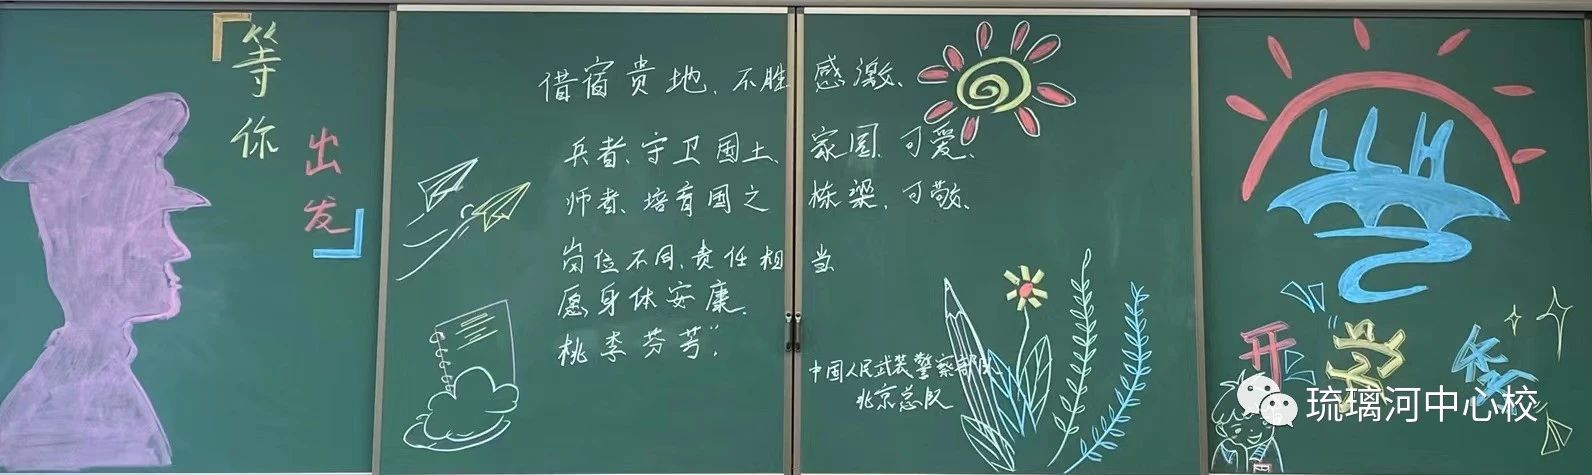 「等你
出发」
借宿贵地、不胜感激、
兵者、守卫国土、家园、可爱、
师者、培育国之栋梁、可敬、
岗位不同、责任相当
愿身体安康、
桃李芬芳"。
中国人民武装警察部队
北京总队
LLH
开学
琉璃河中心校